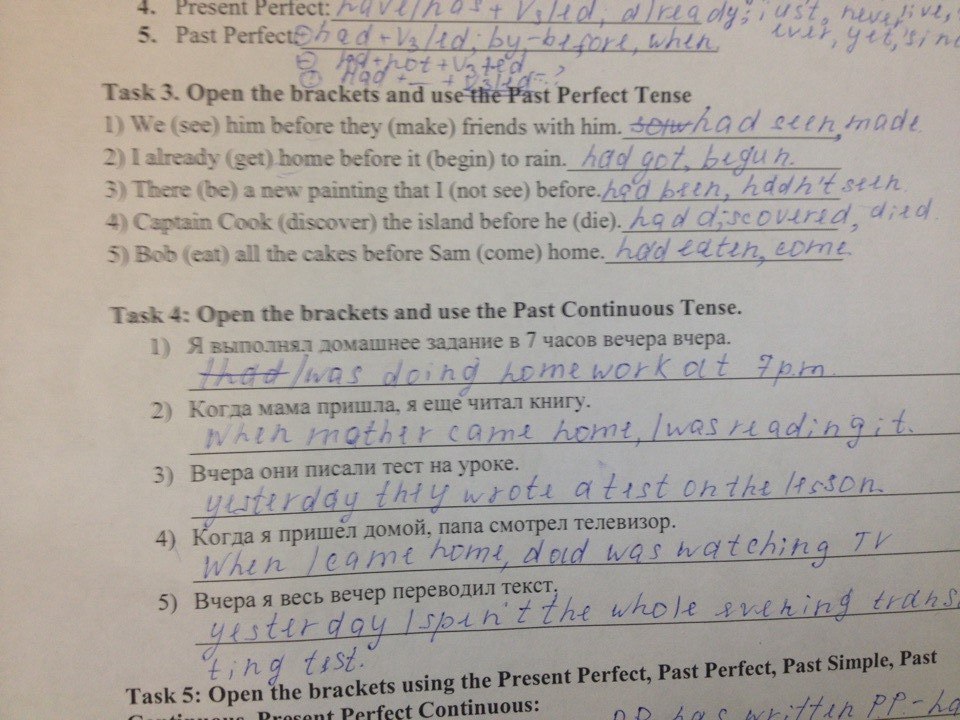 4. Present Perfect: have/has + V3/ed, already, just, never, live,
ever, yet, sinc
5. Past Perfect: had + V3/ed; by-before, when
had + not + V3 +ed
Had + — + V3/ed
Task 3. Open the brackets and use the Past Perfect Tense
1) We (see) him before they (make) friends with him. had seen, made
2) I already (get) home before it (begin) to rain. had got, begun.
3) There (be) a new painting that I (not see) before. had been, hadn't seen
4) Captain Cook (discover) the island before he (die). had discovered, died.
5) Bob (eat) all the cakes before Sam (come) home. had eaten, come
Task 4: Open the brackets and use the Past Continuous Tense.
1) Я выполнял домашнее задание в 7 часов вечера вчера.
I had I was doing home work at 7 p.m.
2) Когда мама пришла, я еще читал книгу.
When mother came home, I was reading it.
3) Вчера они писали тест на уроке.
yesterday they wrote a test on the lesson.
4) Когда я пришел домой, папа смотрел телевизор.
When I came home, dad was watching TV
5) Вчера я весь вечер переводил текст.
yesterday I spen't the whole evening trans
ting test.
Task 5: Open the brackets using the Present Perfect, Past Perfect, Past Simple, Past
Continuous, Present Perfect Continuous:
PP has written PP-ha